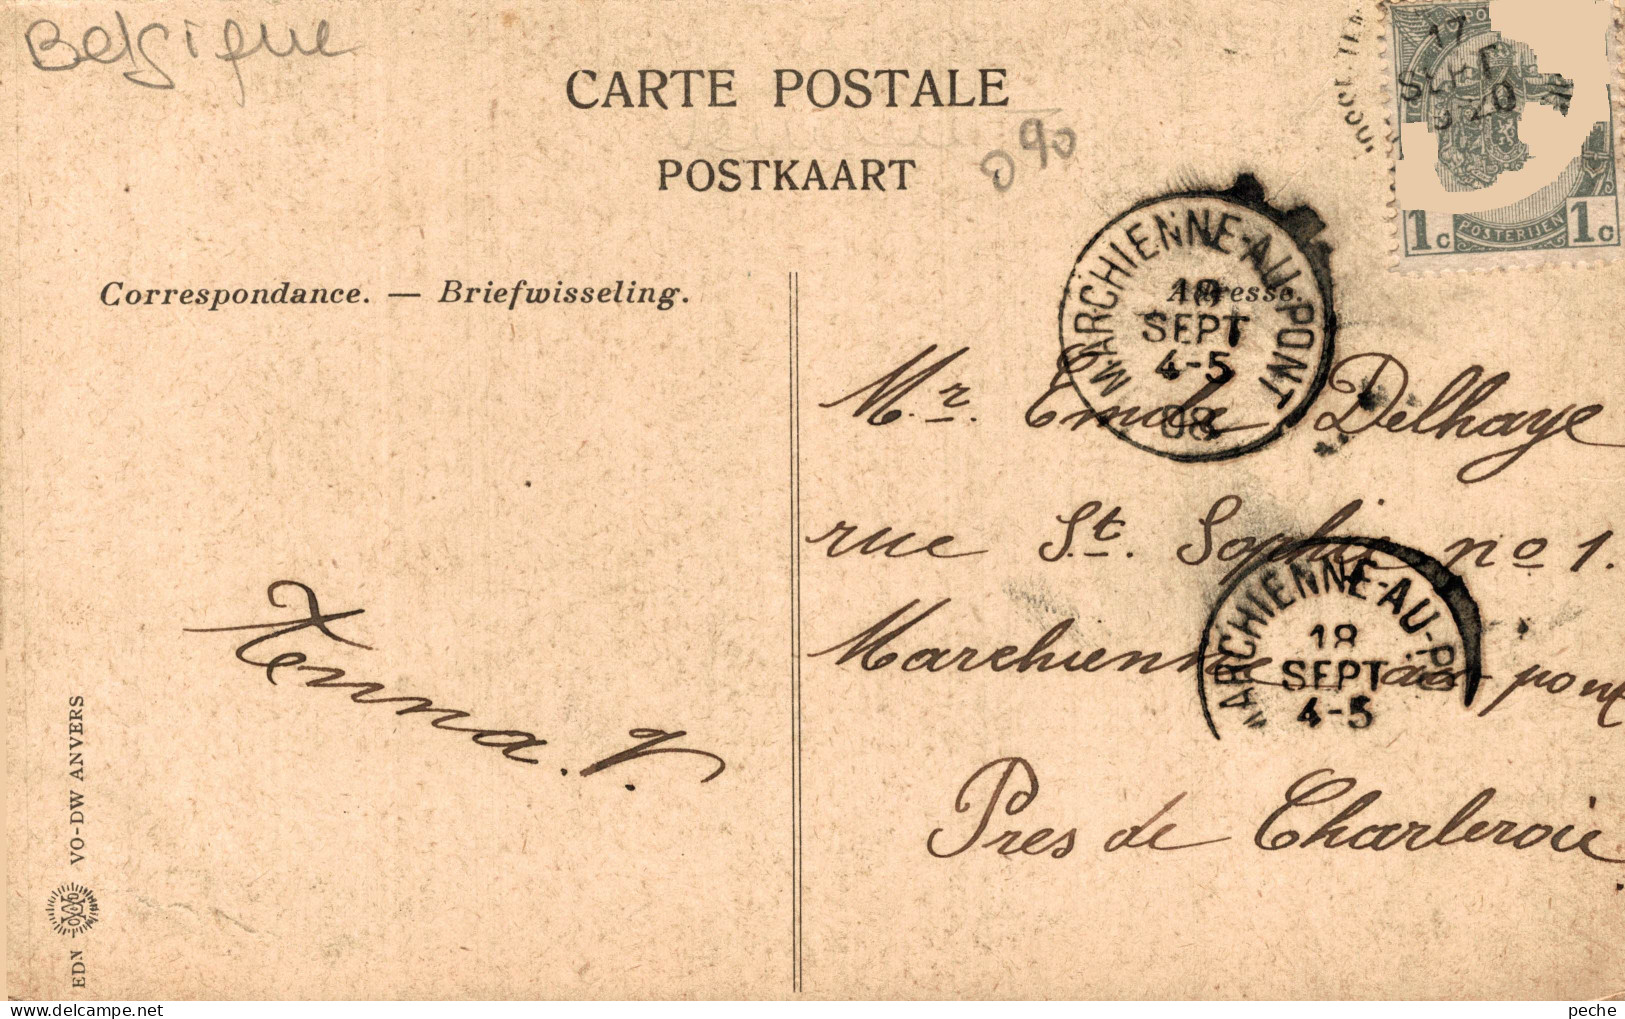 Belgique
CARTE POSTALE
POSTKAART
090
17
SEPT
20
1c POSTERIJEN 1c
MARCHIENNE-AU-PONT
18
SEPT
4-5
08
Correspondance. — Briefwisseling.
Adresse.
Mr. Emile Delhaye
rue St. Sophie no 1.
MARCHIENNE-AU-PO
18
SEPT
4-5
Marchienne au pont
Près de Charleroie
Jenna. V.
EDN VO-DW ANVERS
delcampe.net
peche